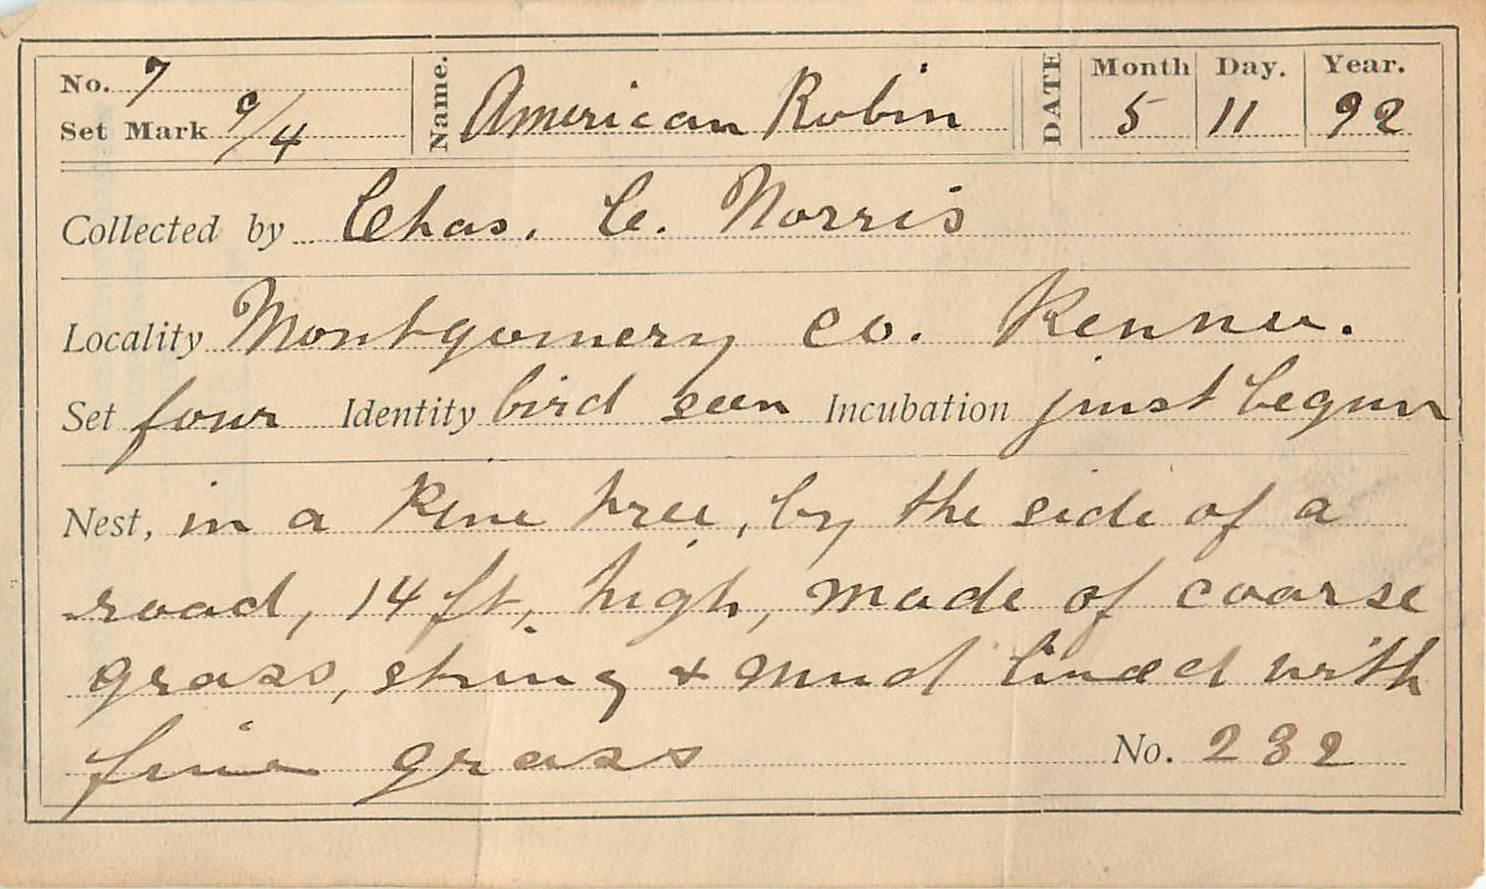 No. 7 Name. American Robin DATE Month Day. Year.
Set Mark 9/4 5 11 92
Collected by Chas. C. Norris
Locality Montgomery Co. Penna.
Set four Identity bird seen Incubation just begun
Nest, in a Pine tree, by the side of a
road, 14 ft, high, made of coarse
grass, string & mud lined with
fine grass No. 232